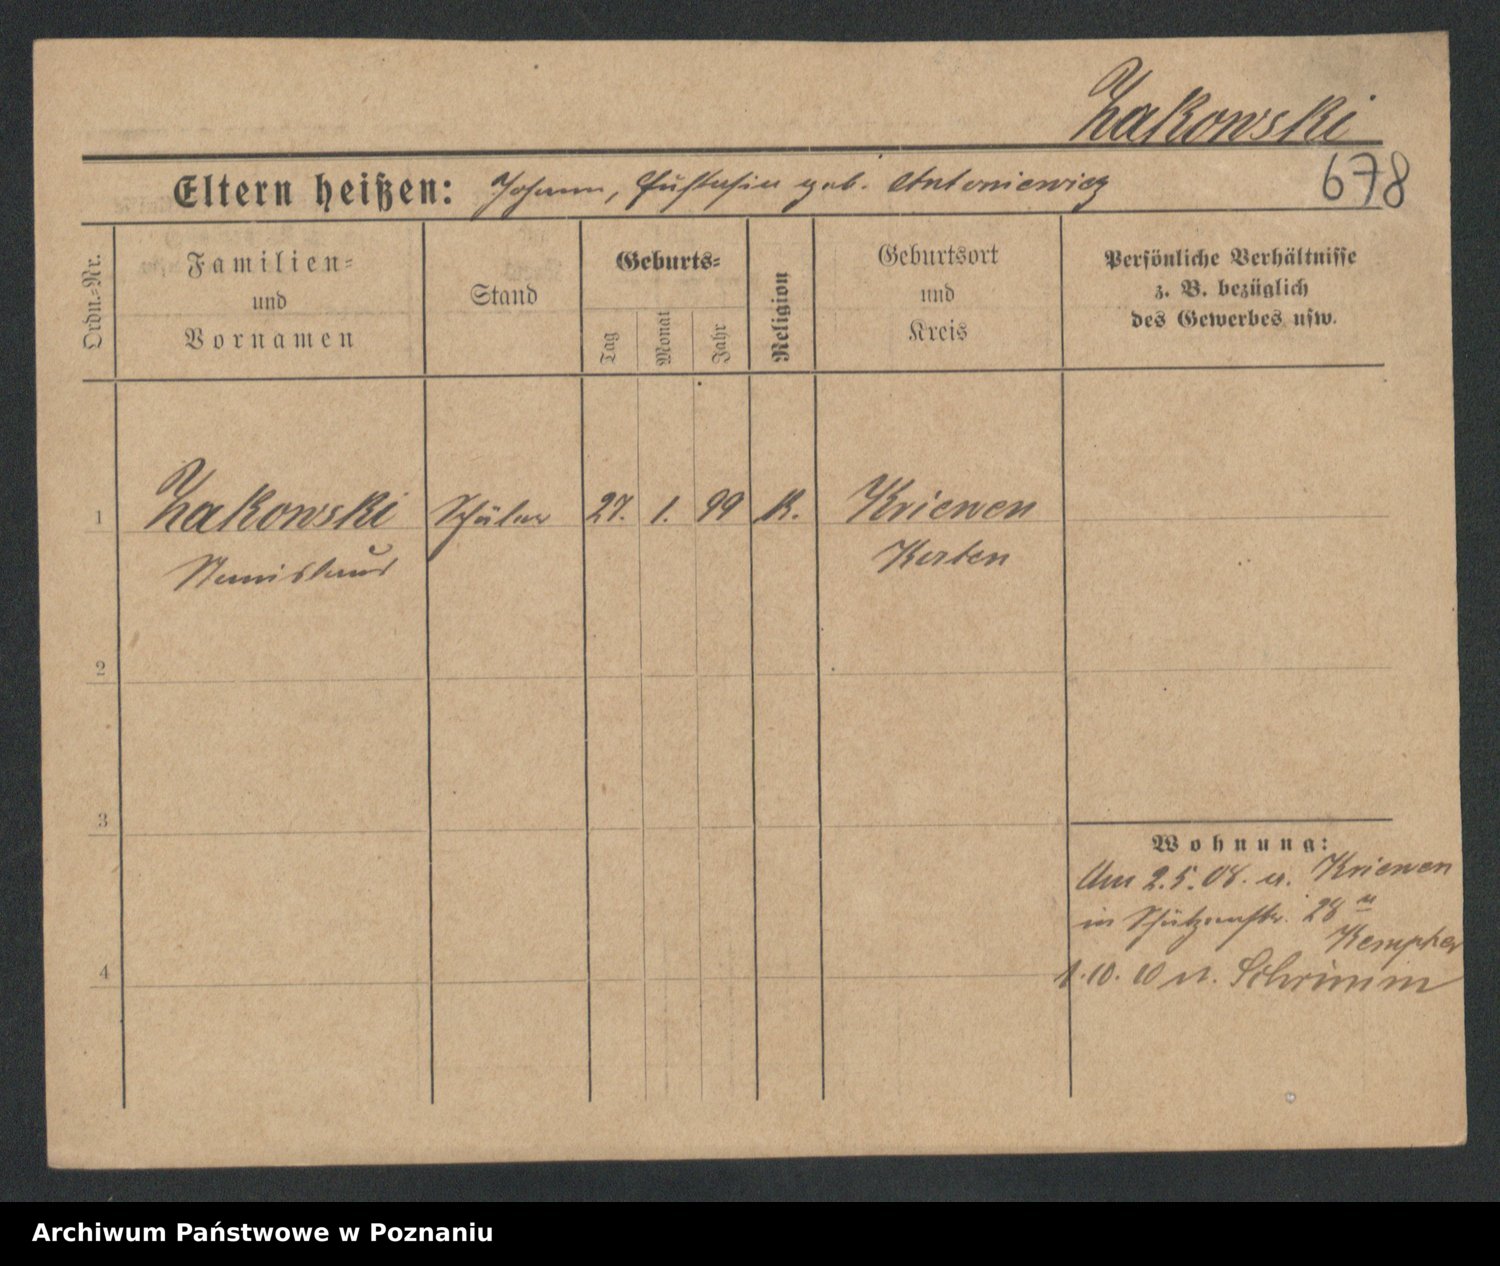 Zakowski
Eltern heißen: Johann, Eustasia geb. Antoniewicz
678
Ordn.=Nr.
Familien=
und
Vornamen
Stand
Geburts=
Tag
Monat
Jahr
Religion
Geburtsort
und
Kreis
Persönliche Verhältnisse
z. B. bezüglich
des Gewerbes usw.
1 Zakowski Schüler 27. 1. 99 K. Kriewen
Stanislaus Kosten
2
3
Wohnung:
Am 2.5.08. v. Kriewen
in Schützenstr. 28
4
1.10.10 n. Schrimm
Archiwum Państwowe w Poznaniu